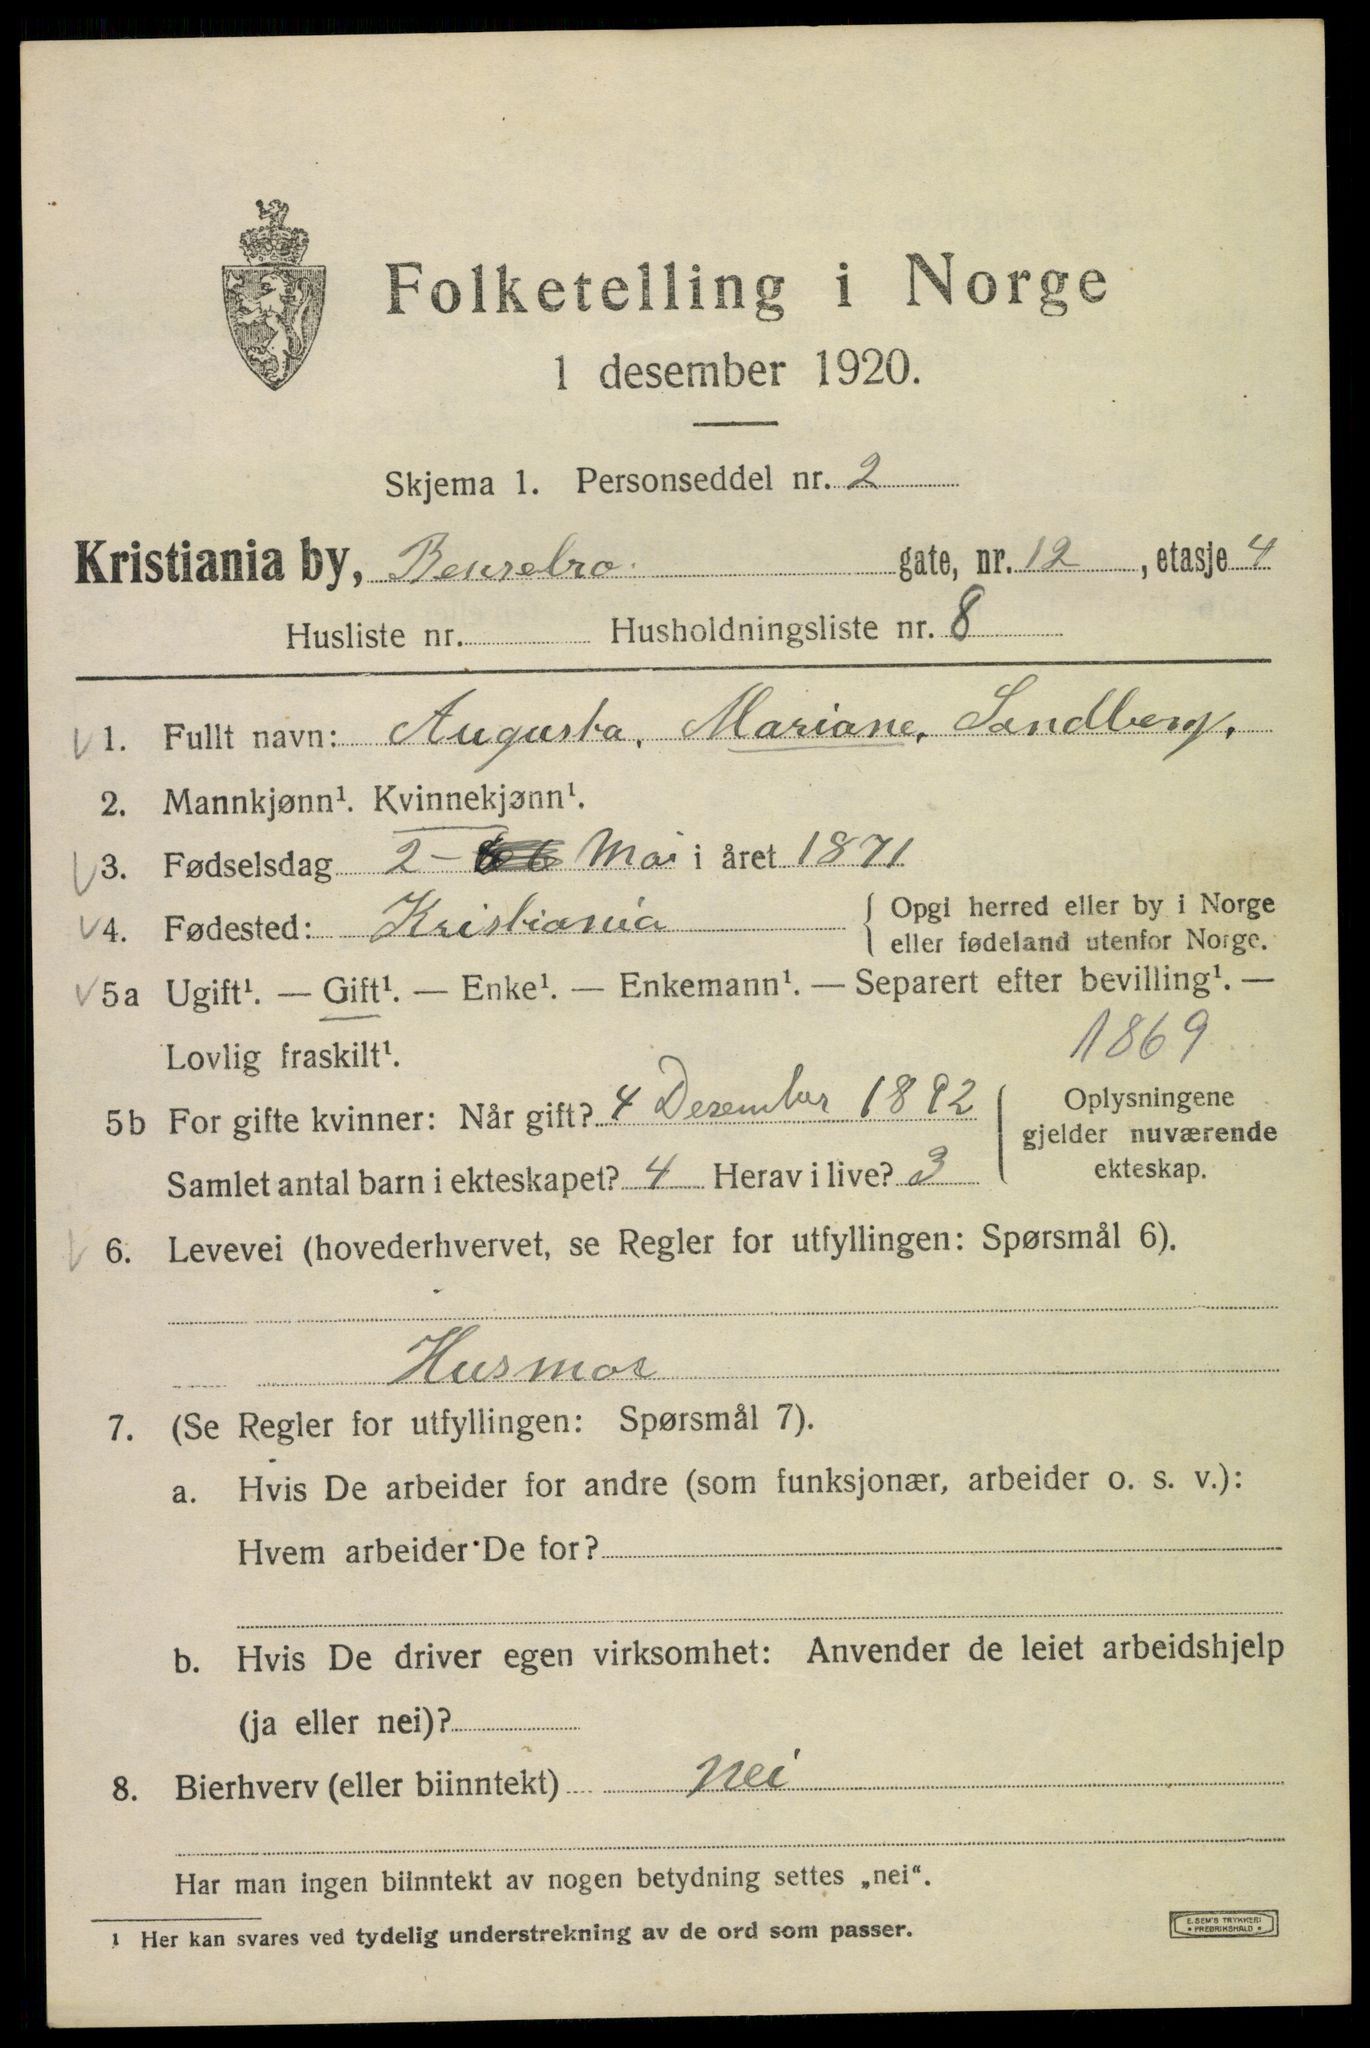 Folketelling i Norge
1 desember 1920.
Skjema 1. Personseddel nr. 2
Kristiania by, Bensebro gate, nr. 12, etasje 4
Husliste nr. Husholdningsliste nr. 8
1. Fullt navn: Augusta, Mariane, Sandberg.
2. Mannkjønn¹. Kvinnekjønn¹.
3. Fødselsdag 2 - Mai i året 1871
4. Fødested: Kristiania { Opgi herred eller by i Norge
eller fødeland utenfor Norge.
5a Ugift¹. — Gift¹. — Enke¹. — Enkemann¹. — Separert efter bevilling¹. —
Lovlig fraskilt¹. 1869
5b For gifte kvinner: Når gift? 4 Desember 1892 { Oplysningene
gjelder nuværende
Samlet antal barn i ekteskapet? 4 Herav i live? 3 ekteskap.
6. Levevei (hovederhvervet, se Regler for utfyllingen: Spørsmål 6).
Husmor
7. (Se Regler for utfyllingen: Spørsmål 7).
a. Hvis De arbeider for andre (som funksjonær, arbeider o. s. v.):
Hvem arbeider De for?
b. Hvis De driver egen virksomhet: Anvender de leiet arbeidshjelp
(ja eller nei)?
8. Bierhverv (eller biinntekt) nei
Har man ingen biinntekt av nogen betydning settes „nei“.
1 Her kan svares ved tydelig understrekning av de ord som passer.
E. SEM'S TRYKKERI
* FREDRIKSHALD *